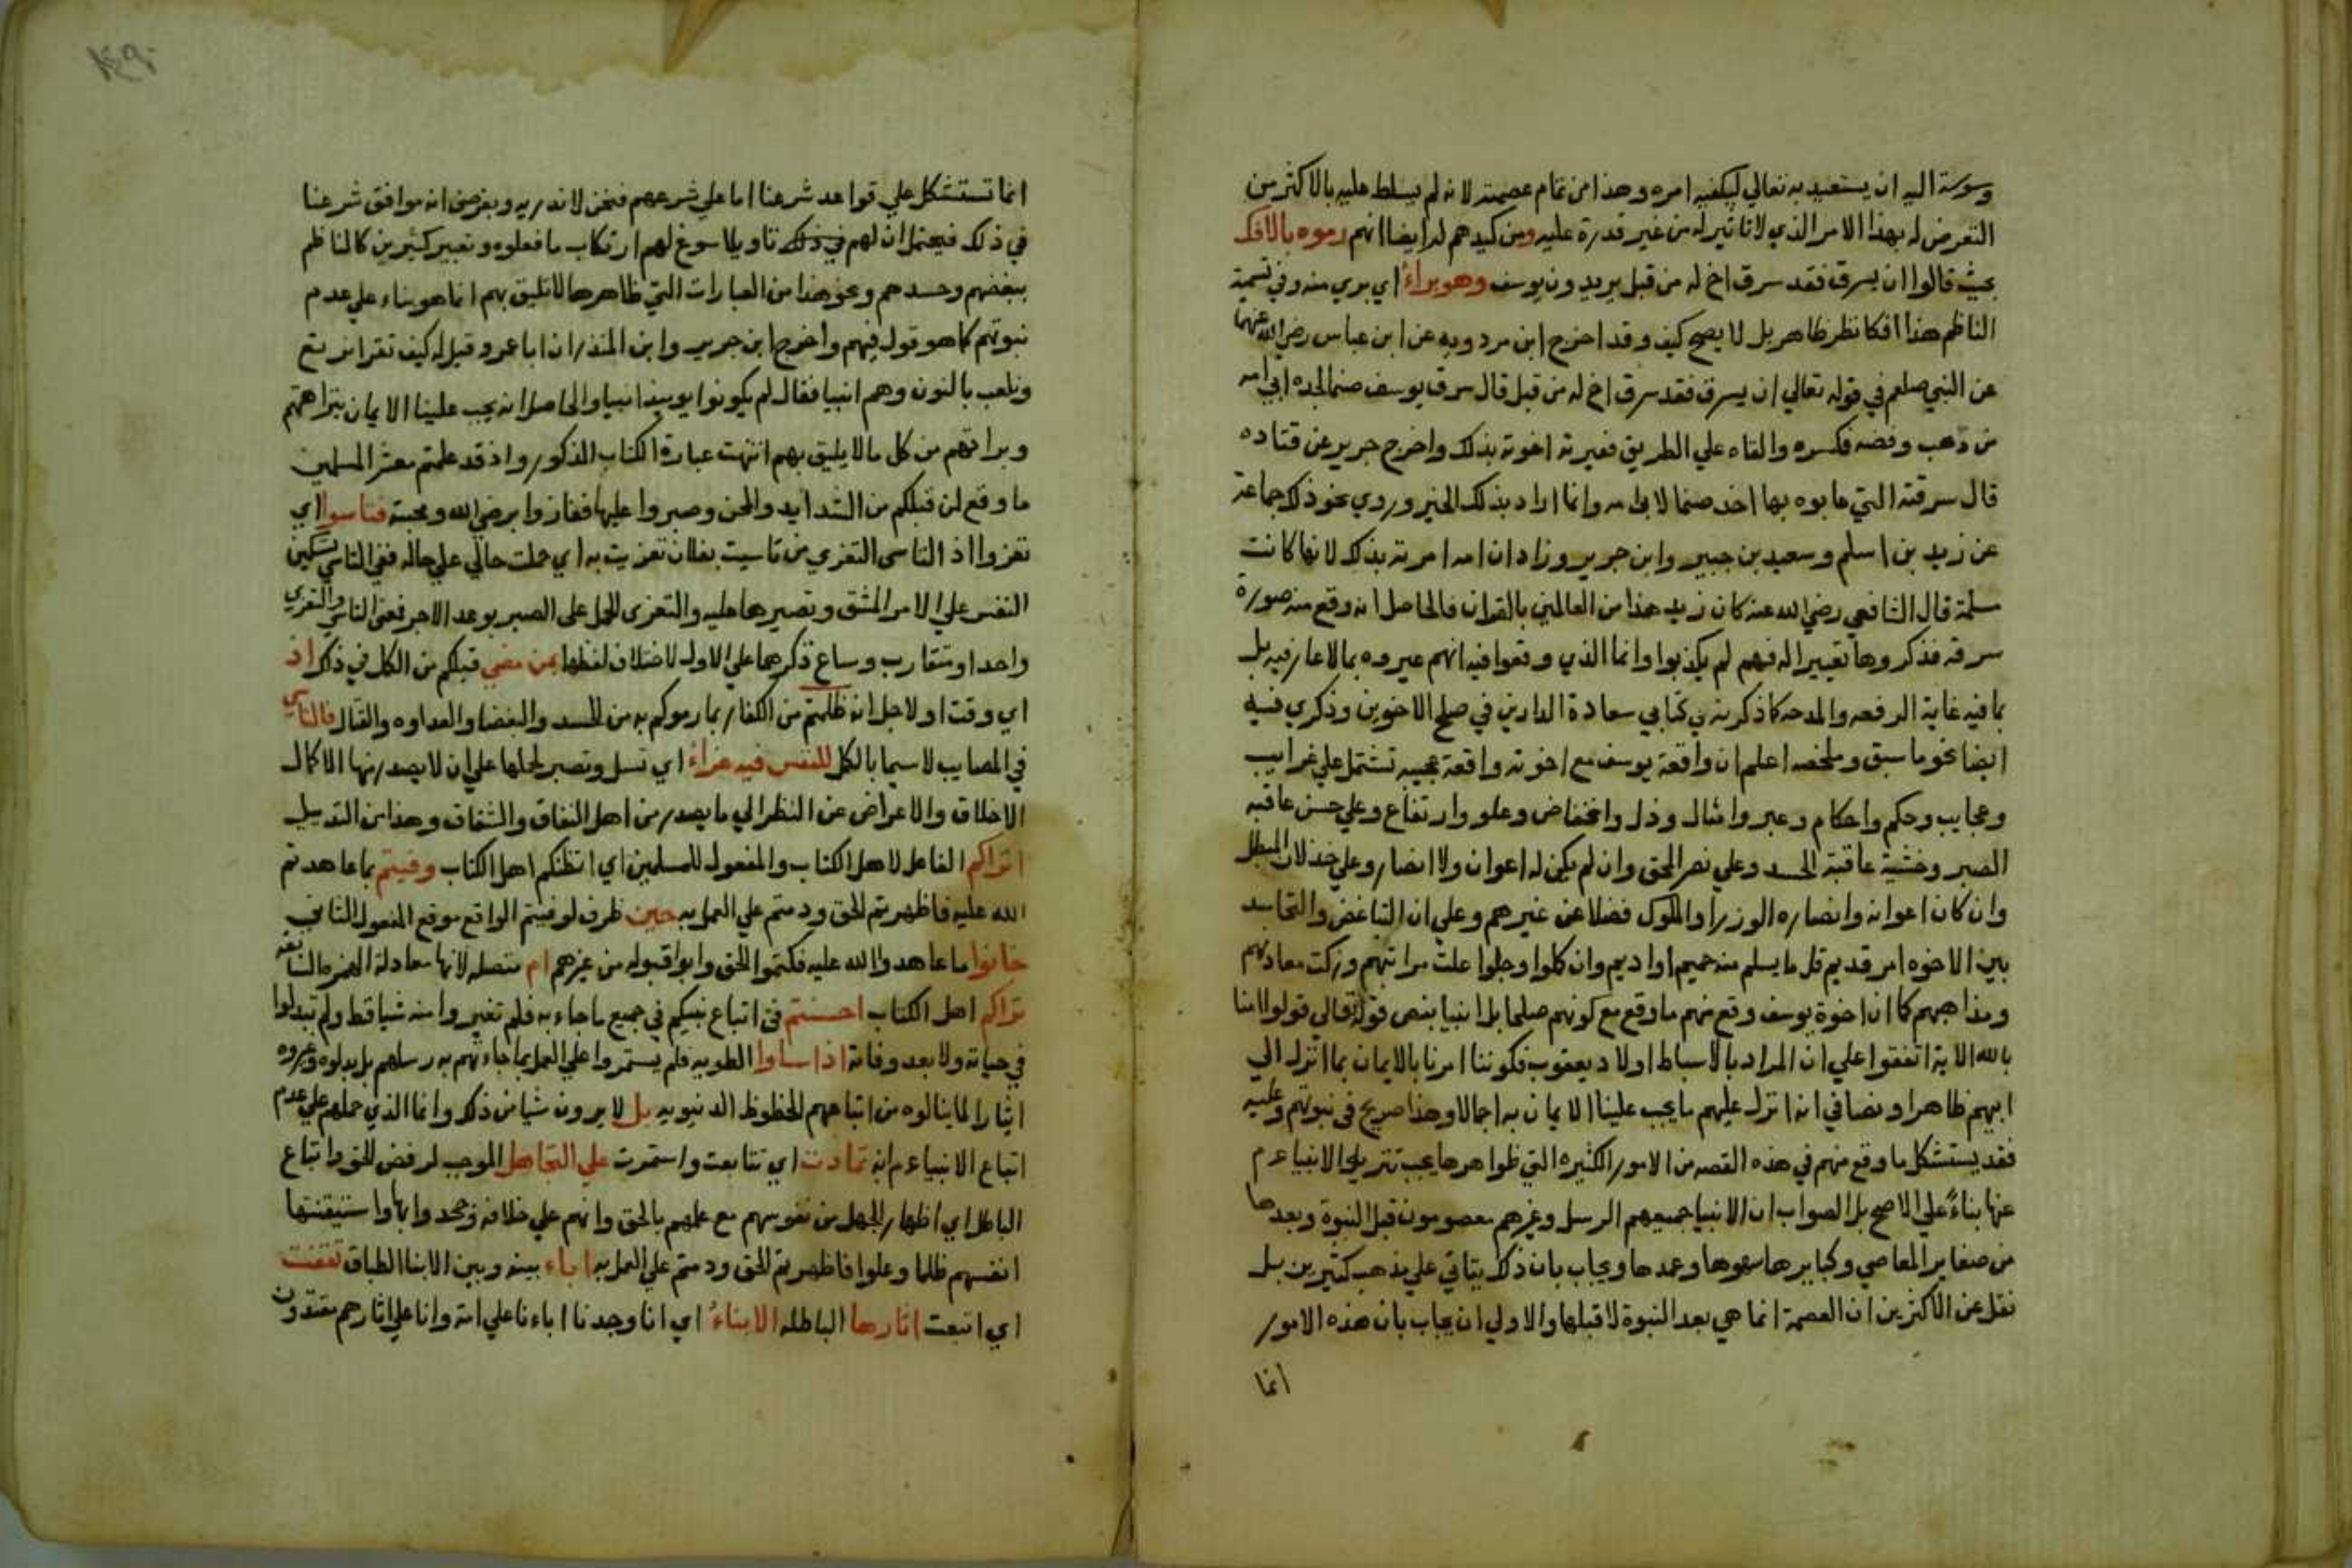 وسوسة اليه ان يستعيذ به تعالي ليكفيه امره وهذا من تمام عصمته لانه لم يسلط عليه بالاكثر من
التعرض له بهذا الامر الذي لا تاثير له من غير قدرة عليه ومن كيدهم له ايضا انهم رموه بالافك
بحيث قالوا ان يسرق فقد سرق اخ له من قبل يريدون يوسف وهو براء اي بري منه وفي تسمية
الناظم هذا افكا نظر ظاهر بل لا يصح كيف وقد اخرج ابن مردويه عن ابن عباس رضي الله عنهما
عن النبي صلعم في قوله تعالي ان يسرق فقد سرق اخ له من قبل قال سرق يوسف صنما لجده ابي امه
من ذهب وفضه فكسره والقاه علي الطريق فعيرته اخوته بذلك واخرج جرير عن قتاده
قال سرقته التي عابوه بها اخذ صنما لابي امه وانما اراد بذلك الخير وروي نحو ذلك جماعة
عن زيد بن اسلم وسعيد بن جبير وابن جرير وزاد ان امه امرته بذلك لانها كانت
سلمة قال الشافعي رضي الله عنه كان زيد هذا من العالمين بالقران فالحاصل انه وقع منه صورة
سرقه فذكروها تعييرا له فهم لم يكذبوا وانما الذي وقعوا فيه انهم عيروه بما لا عار فيه بل
بما فيه غاية الرفعه والمدحه كما ذكرته في كتابي سعادة الدارين في صلح الاخوين وذكري فيه
ايضا نحو ما سبق وملخصه اعلم ان واقعة يوسف مع اخوته واقعة عجيبه تشتمل علي غرايب
وعجايب وحكم واحكام وعبر وامثال وذل وانخفاض وعلو وارتفاع وعلي حسن عاقبه
الصبر وخشية عاقبة الحسد وعلي نصر الحق وان لم يكن له اعوان ولا انصار وعلي خذلان المبطل
وان كان اعوانه وانصاره الوزرا والملوك فضلا عن غيرهم وعلي ان التباغض والتحاسد
بين الاخوه امر قديم قل ما يسلم منه حميم او اديم وان كلوا وجلوا علت مراتبهم وزكت معادنهم
ومذاهبهم كما ان اخوة يوسف وقع منهم ما وقع مع كونهم صلحا بل انبيا بنص قوله تعالي قولوا امنا
بالله الاية اتفقوا علي ان المراد بالاسباط اولاد يعقوب فكوننا امرنا بالايمان بما انزل الي
ابيهم ظاهر او نصا في انه انزل عليهم ما يجب علينا الايمان به اجمالا وهذا صريح في نبوتهم وعليه
فقد يستشكل ما وقع منهم في هذه القصه من الامور الكثيره التي ظواهرها يجب تنزيه الانبيا عم
عنها بناءً علي الاصح بل الصواب ان الانبيا جميعهم الرسل وغيرهم معصومون قبل النبوة وبعدها
من صغاير المعاصي وكبايرها سهوها وعمدها ويجاب بان ذلك يتاتي علي مذهب كثيرين بل
نقل عن الاكثرين ان العصمة انما هي بعد النبوة لا قبلها والاولي ان يجاب بان هذه الامور
انما
انما تستشكل علي قواعد شرعنا اما علي شرعهم فنحن لا ندريه وبفرض انه موافق شرعنا
في ذلك فيحتمل ان لهم في ذلك تاويلا سوغ لهم ارتكاب ما فعلوه وتعبير كثيرين كالناظم
ببغضهم وحسدهم ونحو هذا من العبارات التي ظاهرها لا تليق بهم انما هو بناء علي عدم
نبوتهم كما هو قول فيهم واخرج ابن جرير وابن المنذر ان ابا عمرو قيل له كيف تقرا نرتع
ونلعب بالنون وهم انبيا فقال لم يكونوا يوميذ انبيا والحاصل انه يجب علينا الايمان بنزاهتهم
وبراتهم من كل ما لا يليق بهم انتهت عبارة الكتاب المذكور واذ قد علمتم معشر المسلمين
ما وقع لمن قبلكم من الشدايد والمحن وصبروا عليها ففازوا برضي الله ومحبته فتاسوا اي
تعزوا اذ التاسى التعزي من تاسيت بفلان تعزيت به اي حملت حالي علي حاله ففي التاسي تسكين
النفس علي الامر المشق وتصيرها عليه والتعزى الحمل على الصبر بوعد الاجر فمعنى التاسي والتعزي
واحد او متقارب وساغ ذكرهما علي الاول لاختلاف لفظهما بمن مضي قبلكم من الكل في ذكر اذ
اي وقت او لاجل انه ظلمتم من الكفار بما رموكم به من الحسد والبغضا والعداوه والقتال فالتاسي
في المصايب لاسيما بالكل للنفس فيه عزاء اي تسل وتصبر لحملها علي ان لا يصدر منها الا كمال
الاخلاق والاعراض عن النظر الي ما يصدر من اهل النفاق والشقاق وهذا من التذييل
اتراكم الفاعل لاهل الكتاب والمفعول للمسلمين اي اتظنكم اهل الكتاب وفيتم بما عاهدتم
الله عليه فاظهرتم الحق ودمتم علي العمل به حين ظرف لوفيتم الواقع موقع المفعول الثاني
خانوا ما عاهدوا الله عليه فكتموا الحق وابوا قبوله من غيرهم ام متصله لانها معادلة الهمزه السابقه
تراكم اهل الكتاب احسنتم في اتباع نبيكم في جميع ما جاء به فلم تغيروا منه شيا قط ولم تبدلوا
في حياته ولا بعد وفاته اذا ساوا الطويه فلم يستمروا علي العمل بما جاءتهم به رسلهم بل بدلوه وغيروه
ايثارا لما ينالوه من اتباعهم للحظوظ الدنيويه بل لا يرون شيا من ذلك وانما الذي حملهم علي عدم
اتباع الانبياء عم انه تمادت اي تتابعت واستمرت علي التجاهل الموجب لرفض الحق واتباع
الباطل اي اظهار الجهل من نفوسهم مع علمهم بالحق وانهم علي خلافه وجحدوا بها واستيقنتها
انفسهم ظلما وعلوا فاظهرتم الحق ودمتم علي العمل به اباء بينه وبين الابنا الطباق تقفت
اي اتبعت اثارها الباطله الابناءُ اي انا وجدنا اباءنا علي امة وانا علي اثارهم مقتدون